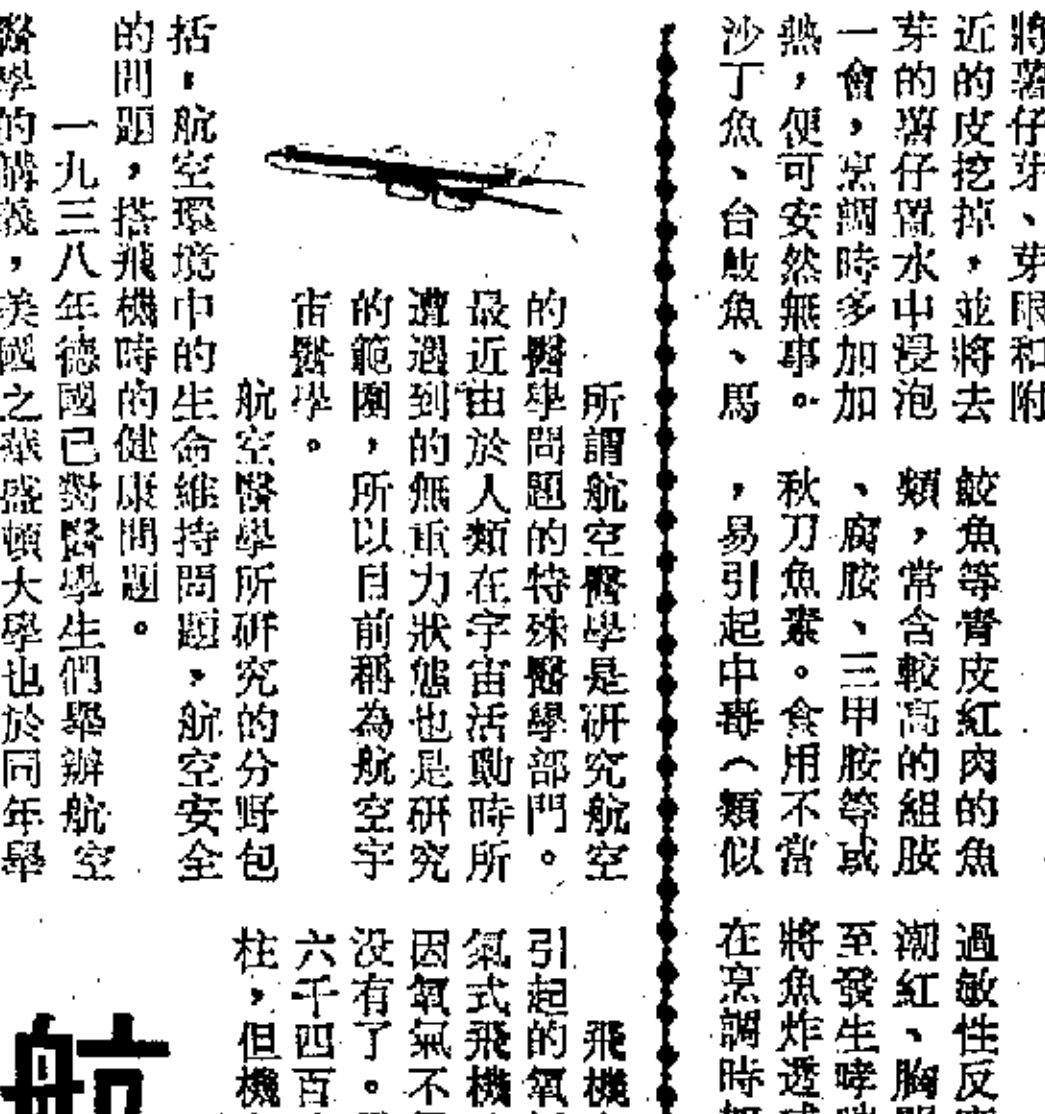 將薯仔芽、芽眼和附
近的皮挖掉,並將去
芽的薯仔置水中浸泡
一會,烹調時多加加
熱,便可安然無事。
沙丁魚、台鮁魚、馬
鮫魚等青皮紅肉的魚
類,常含較高的組胺
、腐胺、三甲胺等或
秋刀魚素。食用不當
,易引起中毒(類似
過敏性反
潮紅、胸
至發生哮
將魚炸透
在烹調時
所謂航空醫學是研究航空
的醫學問題的特殊醫學部門。
最近由於人類在宇宙活動時所
遭遇到的無重力狀態也是研究
的範圍,所以目前稱為航空宇
宙醫學。
航空醫學所研究的分野包
括,航空環境中的生命維持問題,航空安全
的問題,搭飛機時的健康問題。
一九三八年德國已對醫學生們舉辦航空
醫學的講義,美國之華盛頓大學也於同年舉
飛機
引起的氧
氣式飛機
因氧氣不
没有了。
六千四百
柱,但機
航